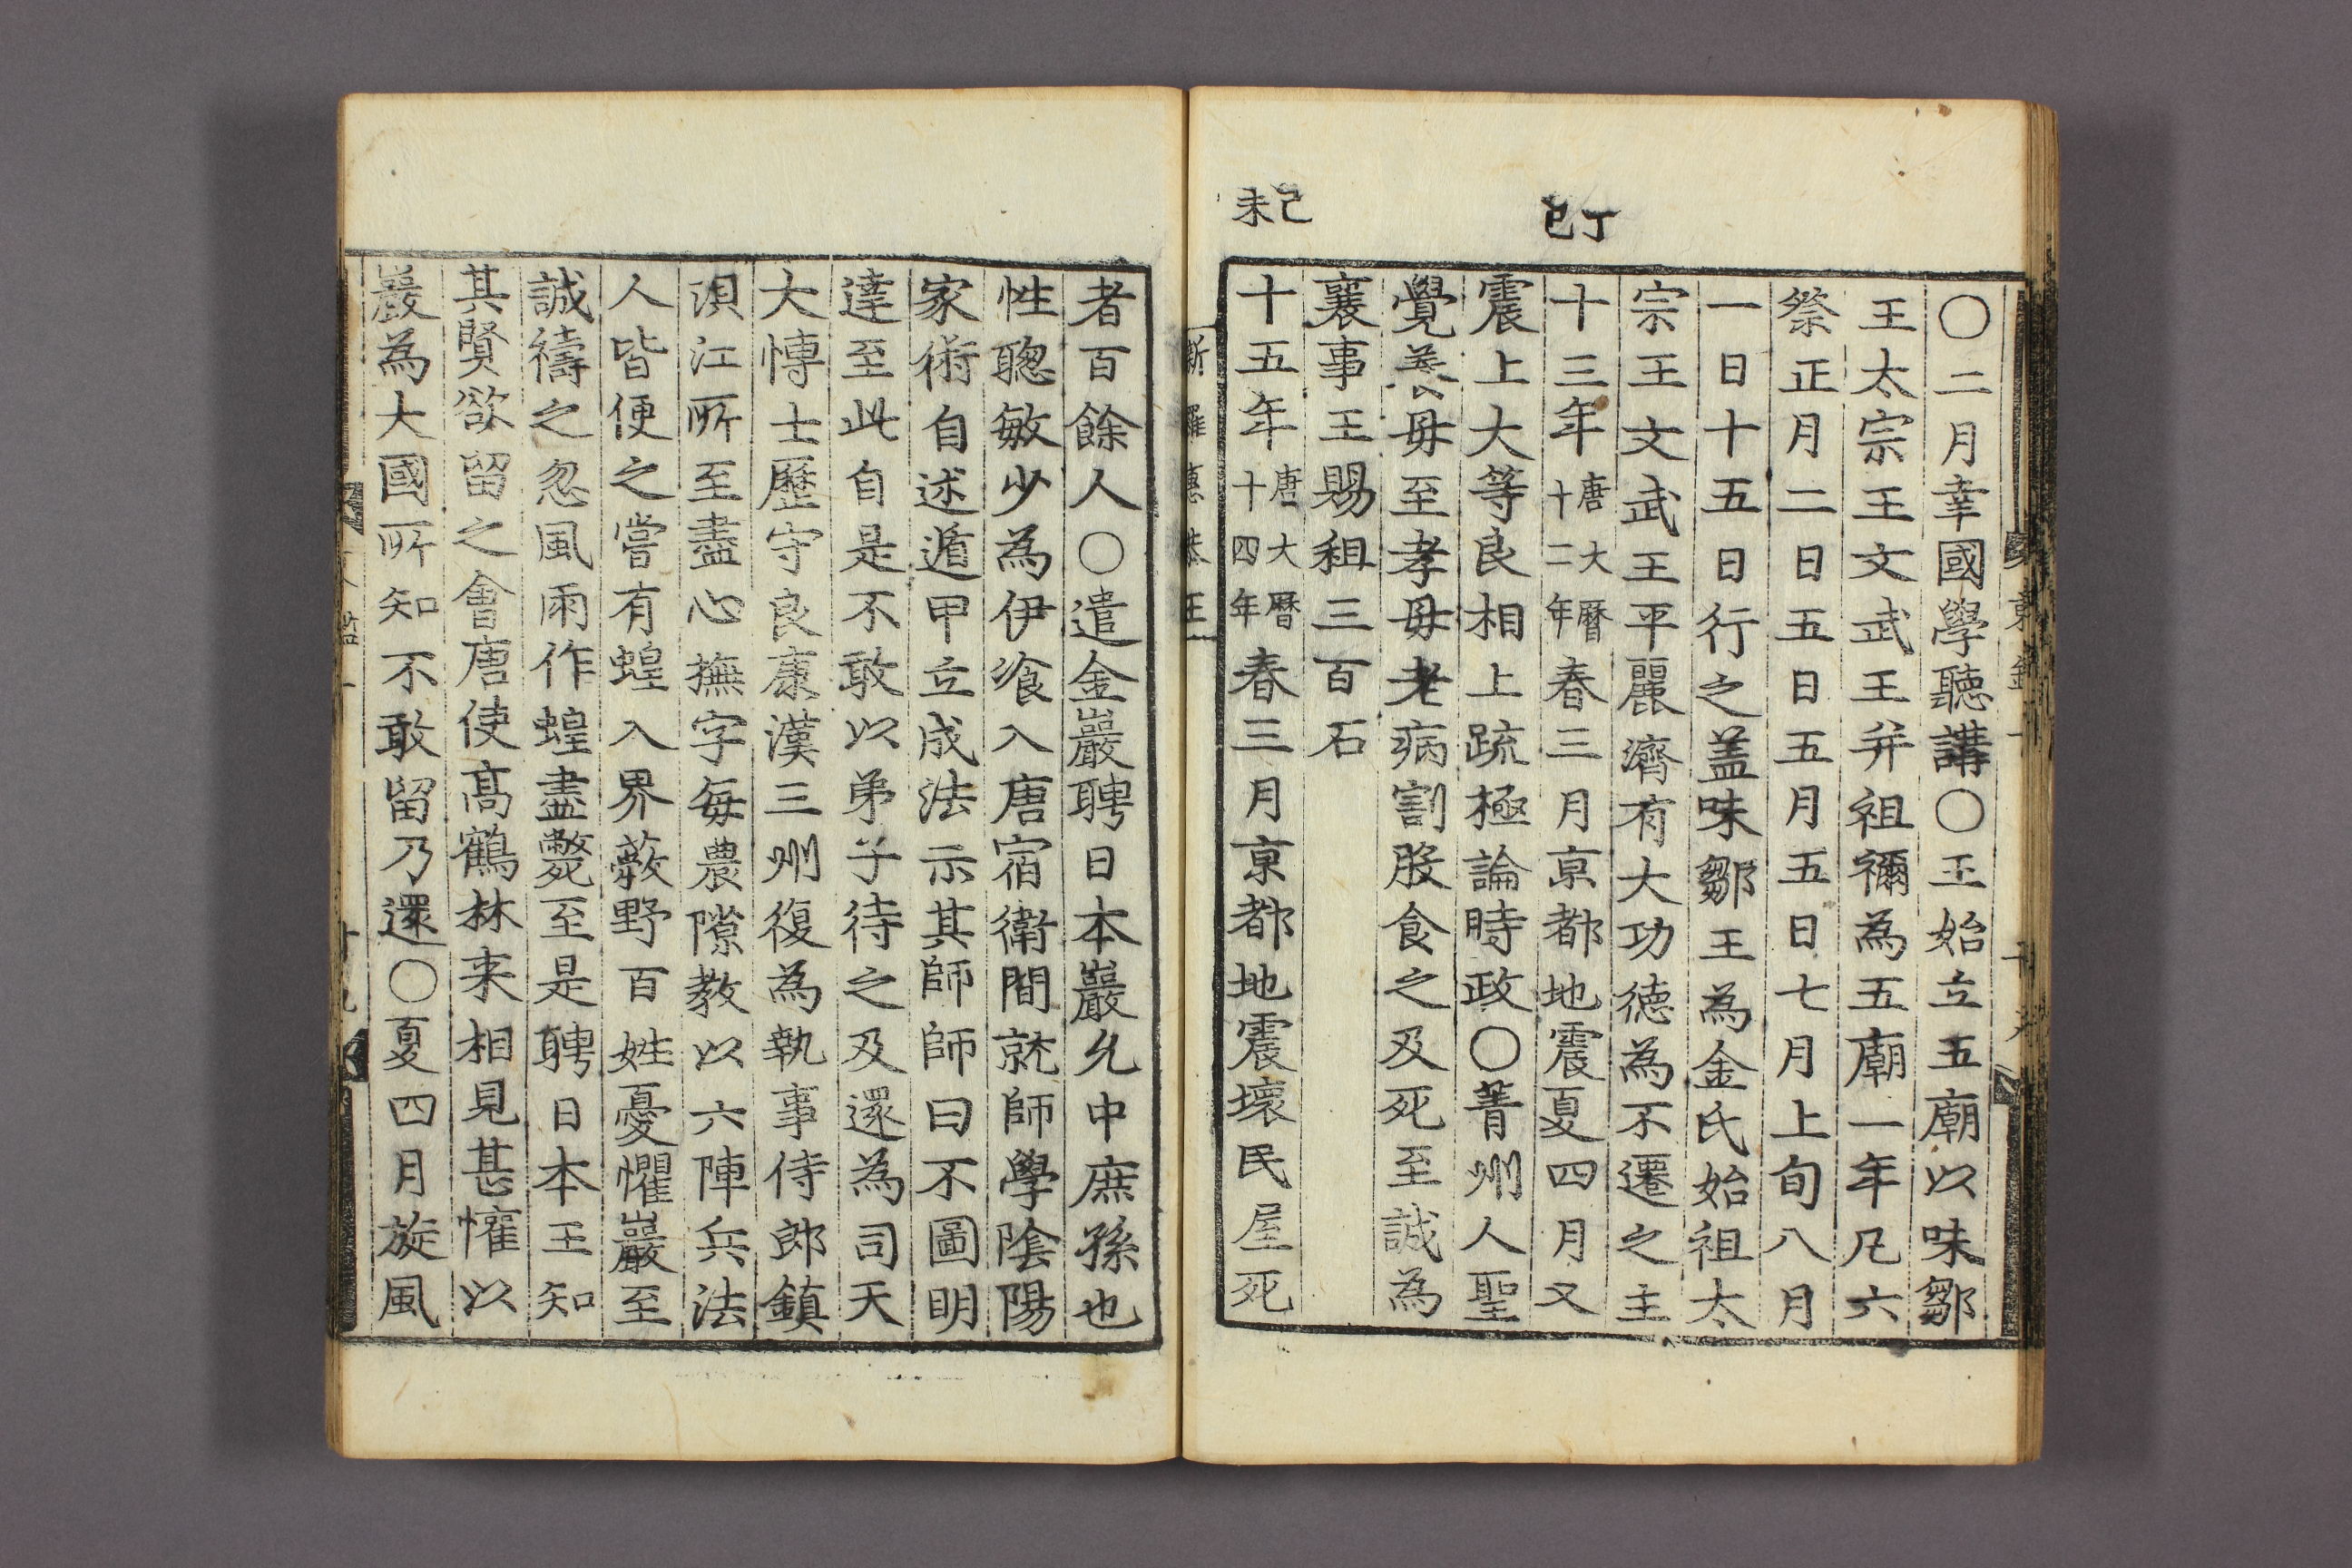 丁巳
己未
〇二月幸國學聽講〇王始立五廟以味鄒
王太宗王文武王并祖禰為五廟一年凡六
祭正月二日五日五月五日七月上旬八月
一日十五日行之盖味鄒王為金氏始祖太
宗王文武王平麗濟有大功德為不遷之主
十三年唐大曆十二年春三月京都地震夏四月又
震上大等良相上疏極論時政〇菁州人聖
覺養母至孝母老病割股食之及死至誠為
襄事王賜租三百石
十五年唐大曆十四年春三月京都地震壞民屋死
新羅惠恭王
者百餘人〇遣金巖聘日本巖允中庶孫也
性聰敏少為伊飡入唐宿衛間就師學陰陽
家術自述遁甲立成法示其師師曰不圖明
達至此自是不敢以弟子待之及還為司天
大博士歷守良康漢三州復為執事侍郎鎮
浿江所至盡心撫字每農隙教以六陣兵法
人皆便之嘗有蝗入界蔽野百姓憂懼巖至
誠禱之忽風雨作蝗盡斃至是聘日本王知
其賢欲留之會唐使高鶴林来相見甚懽以
巖為大國所知不敢留乃還〇夏四月旋風